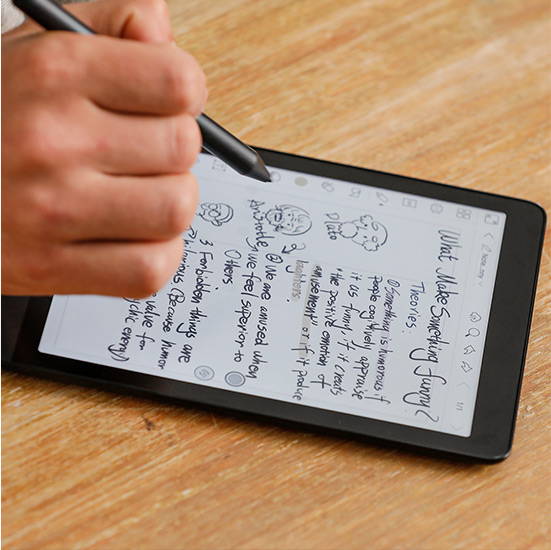 1/1
What Make Something funny?
Theories.
① Something is humorous if
people cognitively appraise
it as funny, if it creats
"the positive emotion of
amusement" or if it produce
laughters.
Plato
2
Aristotle
We are amused when
we feel superior to
Others
3 Forbidden things are
hilarious (Because humor
value for
energy)